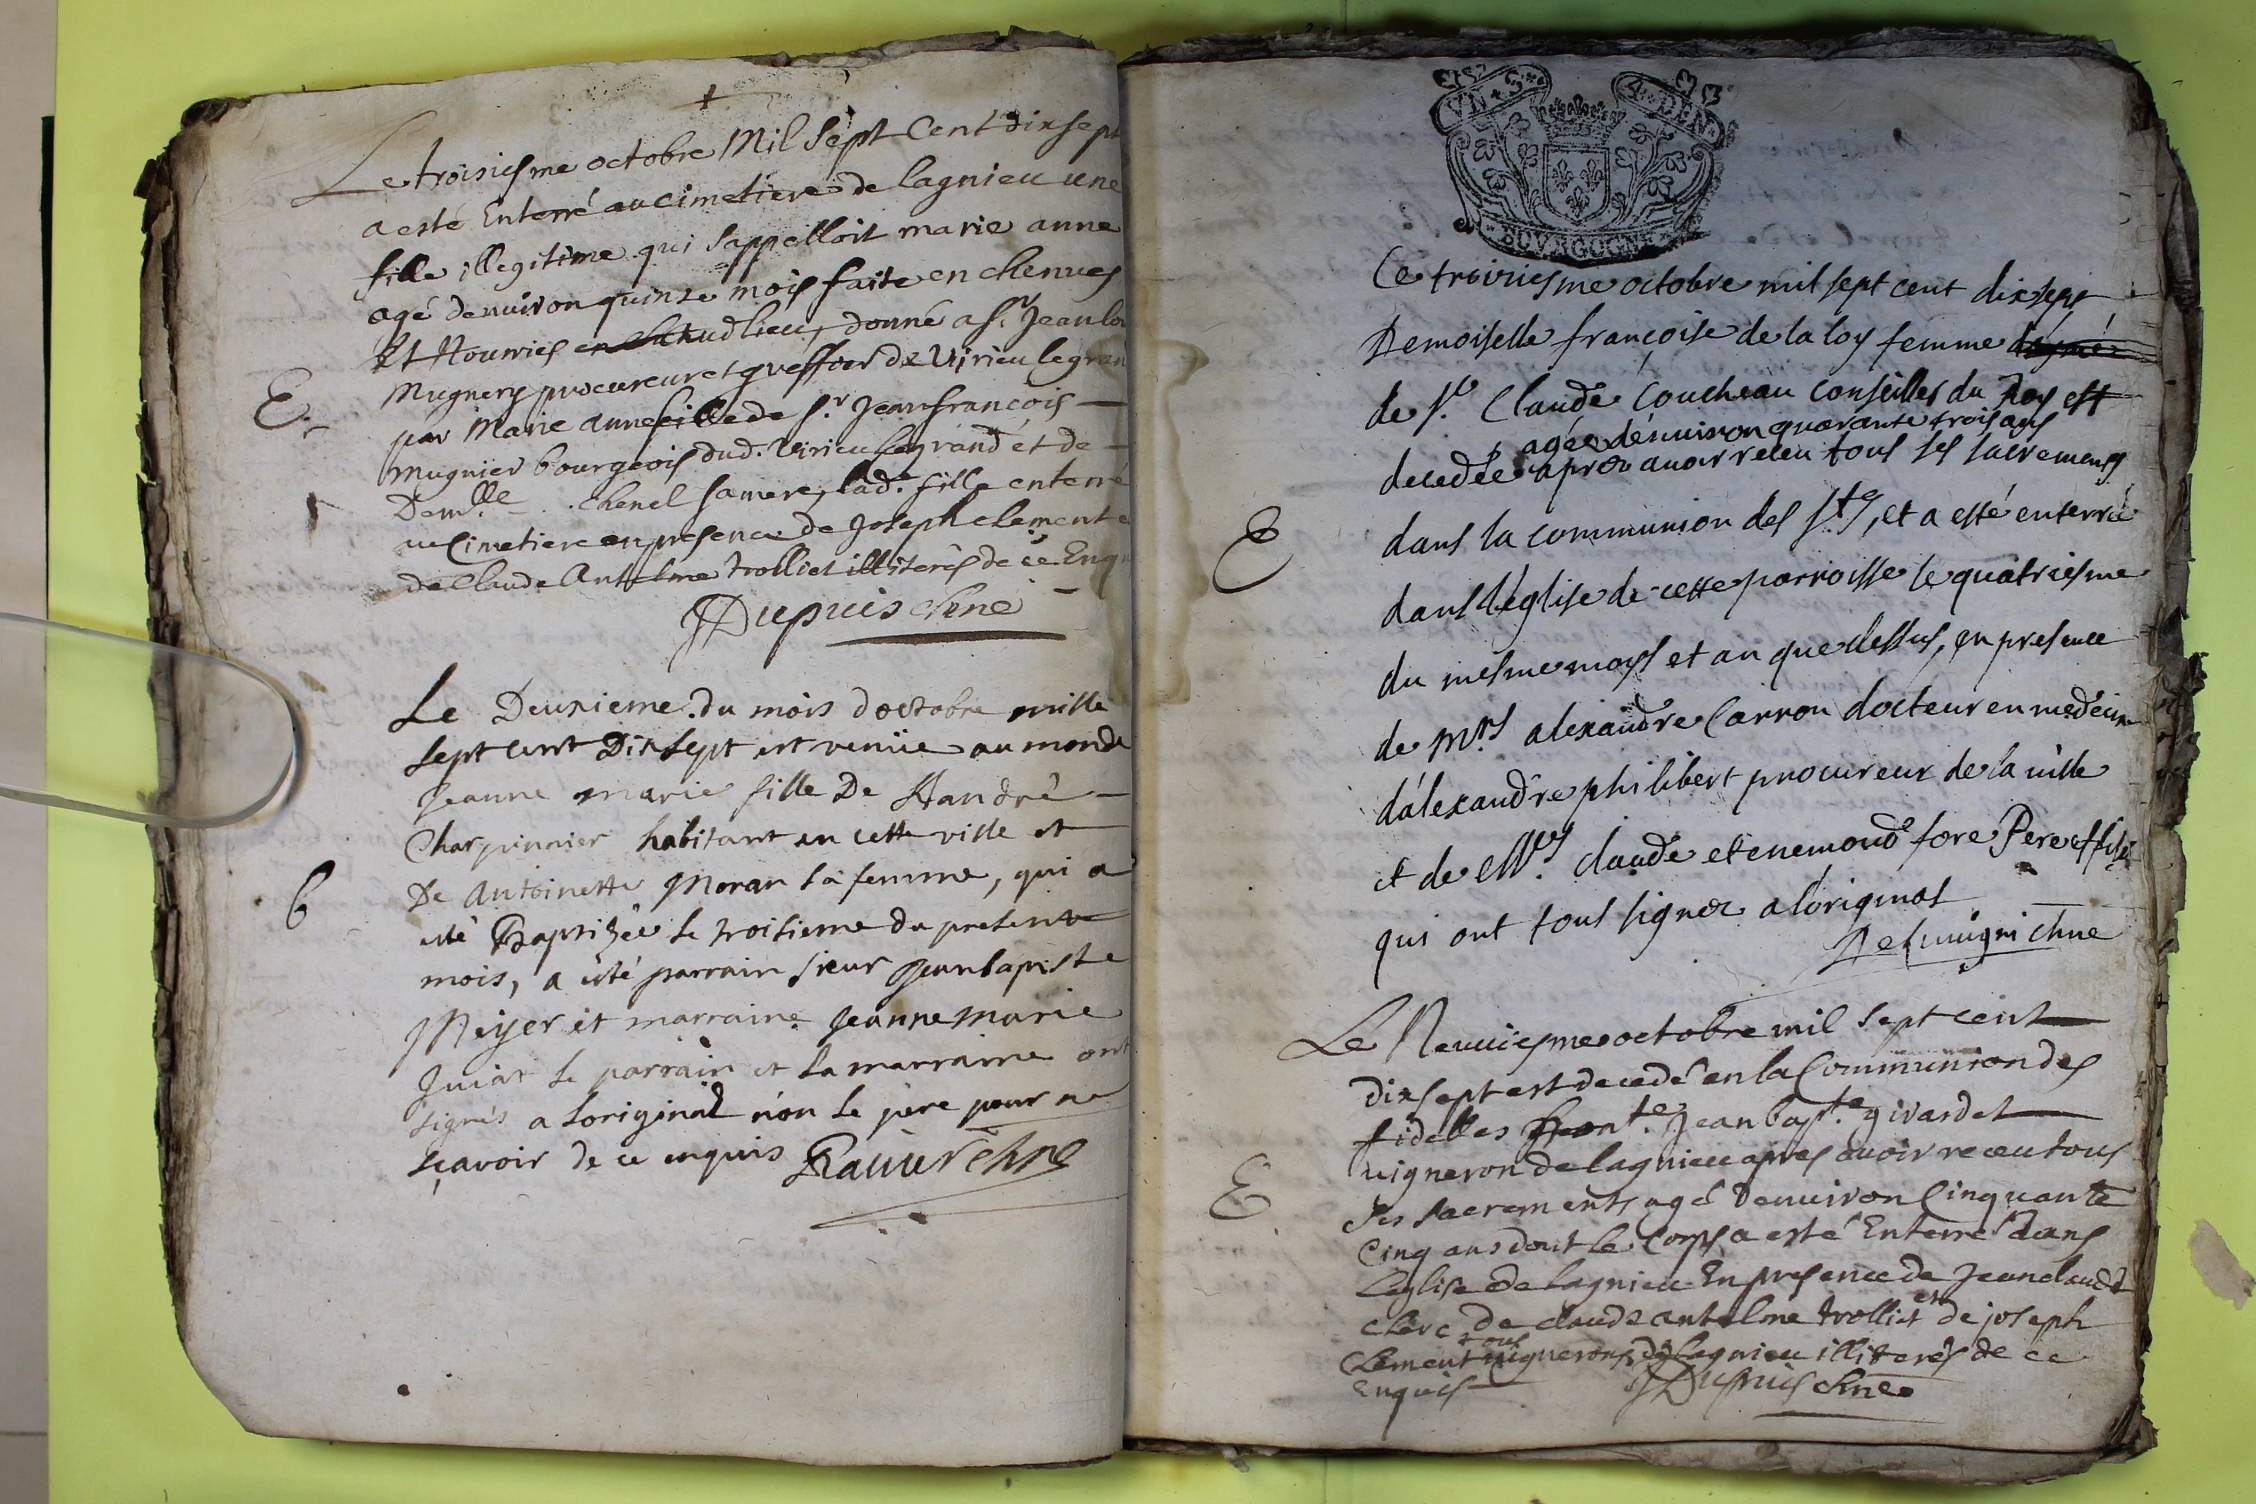 Le troisiesme octobre Mil Sept Cent dix sept
a esté Enterré au cimetiere de lagnieu une
fille illegitime qui s'appelloit marie anne
agé denuiron quinze mois faite en
Et Nourries donné a Sr. Jean
Mugnery procureur et greffier de Virieu le gran
E. par Marie anne fille de Sr. Jean françois
mugnier bourgeois dud. Virieu le grand et de
Demlle. chenel sa mere, lad. fille enterré
au Cimetiere en presence de Joseph clement e
de Claude Antelme trolliet illiterés de ce Enq
JDupuis chne
Le Deuxieme du mois d'octobre mille
sept cent Dix sept est venüe au monde
Jeanne marie fille De Handré
Charpinnier habitant en cette ville et
De Antoinette Moran sa femme, qui a
B esté Baptizée le troisieme du present
mois, a esté parrain sieur Jean baptiste
Meyer et marraine Jeanne Marie
Juiat le parrain et la marraine ont
signés a loriginal non le père pour ne
sçavoir de ce enquis Ravier chne
VN S. 4 DEN
BOVRGOGNE
Ce troisiesme octobre mil sept cent dix sept
Demoiselle françoise de la loy femme
de Sr. Claude Coucheau Conseiller du Roy est
agée denuiron quarante trois ans
decedée apres auoir receu tous ses sacremens
E dans la communion des Sts, et a esté enterrée
dans l'église de cette parroisse le quatriesme
du mesme moys et an que dessus, en presence
de Mrs alexandre Carron docteur en medecine
d'alexandre philibert procureur de la uille
et de Mes. claude et enemond fore Pere et fils
qui ont tous signez a loriginal
chne
Le Neuuiesme octobre mil sept cent
dix sept est decedé en la Communion des
fidelles hont. Jean bapte. givardet
uigneron de lagnieu apres auoir receu tous
E Ses Sacrements agé denuiron Cinquante
Cinq ans dont le Corps a esté Enterré dans
L'église de lagnieu En presence de Jean claude
clerc de claude antelme trolliet et de joseph
Clement tous uignerons de lagnieu illiterés de ce
Enquis JDupuis chne